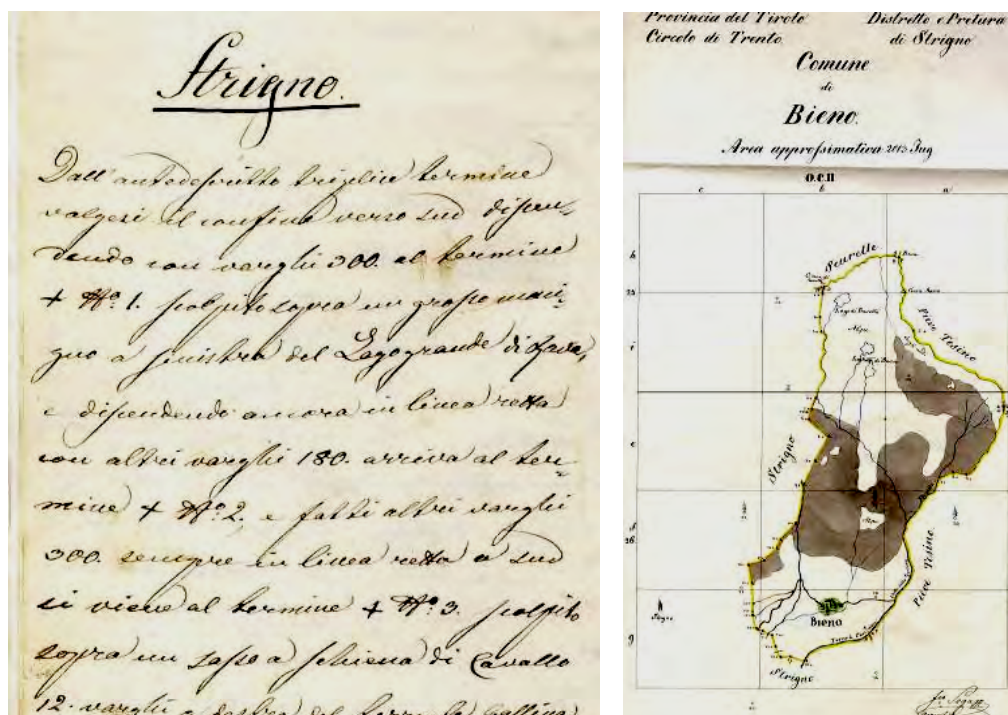 Strigno.
Dall'antedescritto triplice termine
volgesi il confine verso sud discen-
dendo con varghi 300. al termine
+ No. 1. scolpito sopra un grosso maci-
gno a sinistra del Lagogrande di
e discendendo ancora in linea retta
con altri varghi 180. arriva al ter-
mine + No. 2. e fatti altri varghi
300. sempre in linea retta a sud
si viene al termine + No. 3. scolpito
sopra un sasso a schiena di Cavallo
12. varghi a destra del
Provincia del Tirolo
Circolo di Trento
Distretto e Pretura
di Strigno
Comune
di
Bieno.
Area approssimativa 2013 Jug
O.C.II
c b a
h
Scurelle
25
Pieve Tesino
Alpe
i
Strigno
e
Alpe
f
26
Pieve Tesino
Bieno
g
Strigno